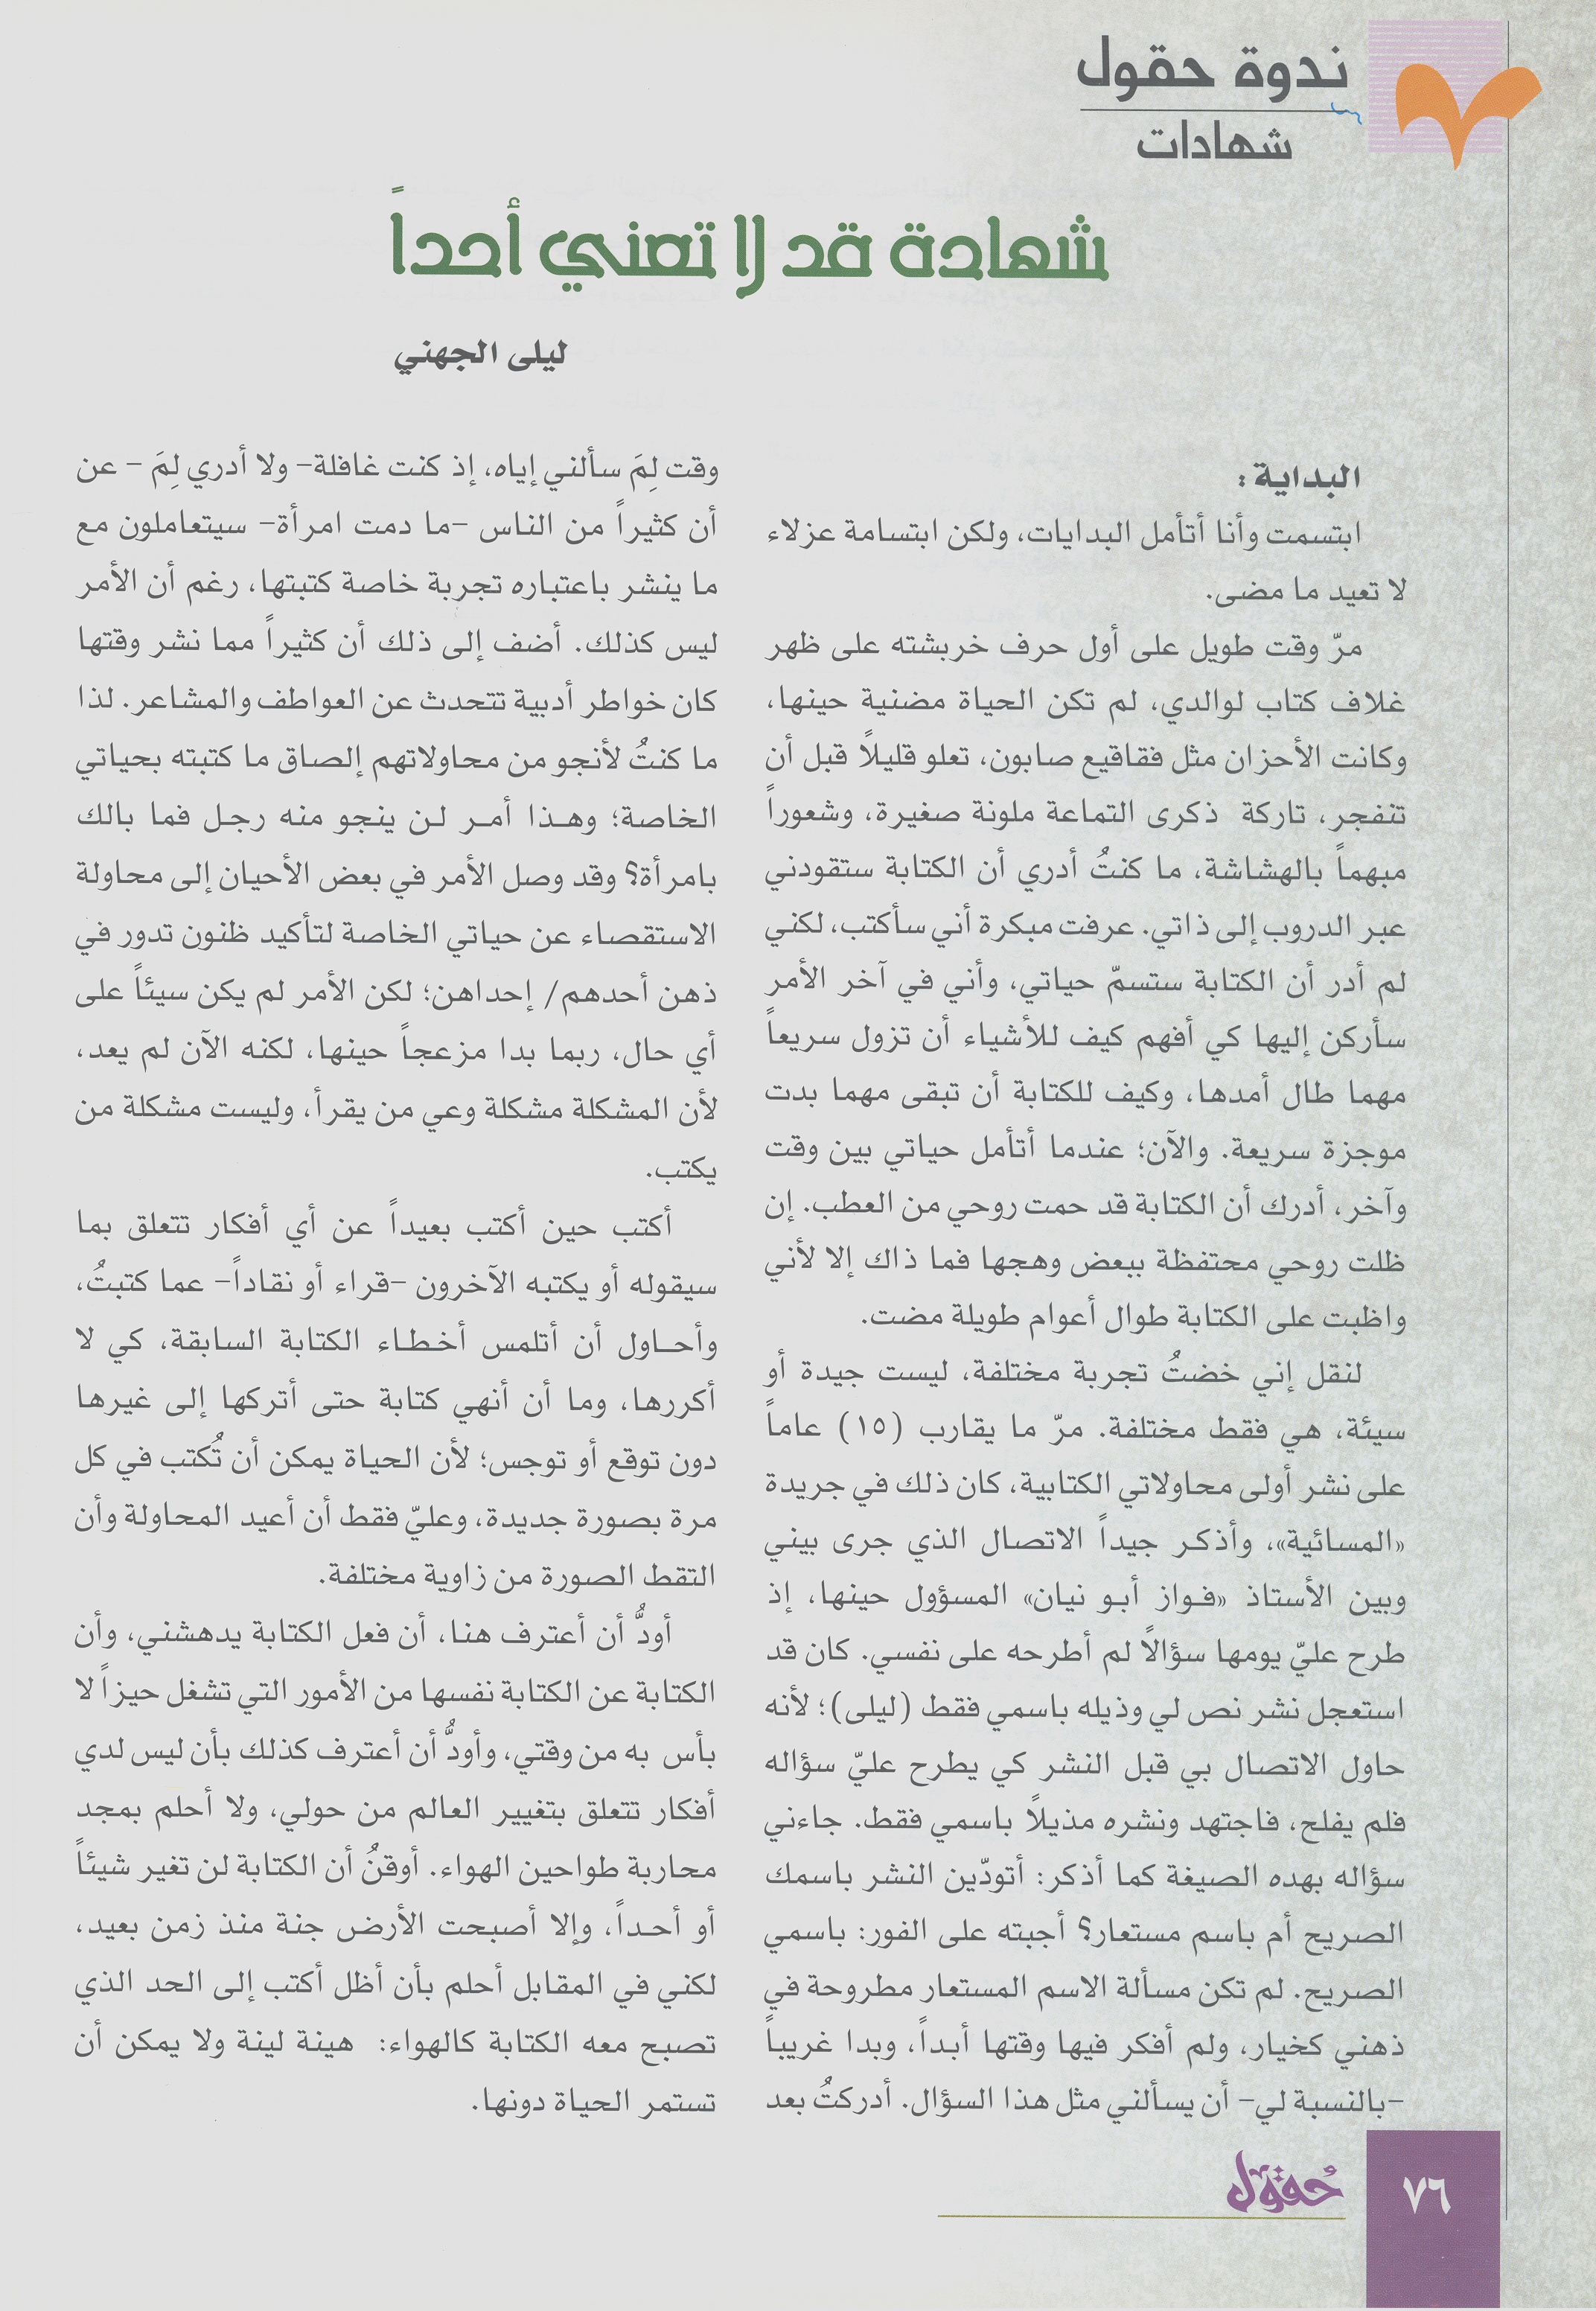 ندوة حقول
شهادات
شهادة قد لا تعني أحداً
ليلى الجهني
البداية :
ابتسمت وأنا أتأمل البدايات، ولكن ابتسامة عزلاء
لا تعيد ما مضى.
مرّ وقت طويل على أول حرف خربشته على ظهر
غلاف كتاب لوالدي، لم تكن الحياة مضنية حينها،
وكانت الأحزان مثل فقاقيع صابون، تعلو قليلاً قبل أن
تنفجر، تاركة ذكرى التماعة ملونة صغيرة، وشعوراً
مبهماً بالهشاشة، ما كنتُ أدري أن الكتابة ستقودني
عبر الدروب إلى ذاتي. عرفت مبكرة أني سأكتب، لكني
لم أدر أن الكتابة ستسمّ حياتي، وأني في آخر الأمر
سأركن إليها كي أفهم كيف للأشياء أن تزول سريعاً
مهما طال أمدها، وكيف للكتابة أن تبقى مهما بدت
موجزة سريعة. والآن؛ عندما أتأمل حياتي بين وقت
وآخر، أدرك أن الكتابة قد حمت روحي من العطب. إن
ظلت روحي محتفظة ببعض وهجها فما ذاك إلا لأني
واظبت على الكتابة طوال أعوام طويلة مضت.
لنقل إني خضتُ تجربة مختلفة، ليست جيدة أو
سيئة، هي فقط مختلفة. مرّ ما يقارب (١٥) عاماً
على نشر أولى محاولاتي الكتابية، كان ذلك في جريدة
«المسائية»، وأذكر جيداً الاتصال الذي جرى بيني
وبين الأستاذ «فواز أبو نيان» المسؤول حينها، إذ
طرح عليّ يومها سؤالاً لم أطرحه على نفسي. كان قد
استعجل نشر نص لي وذيله باسمي فقط (ليلى)؛ لأنه
حاول الاتصال بي قبل النشر كي يطرح عليّ سؤاله
فلم يفلح، فاجتهد ونشره مذيلاً باسمي فقط. جاءني
سؤاله بهده الصيغة كما أذكر: أتودّين النشر باسمك
الصريح أم باسم مستعار؟ أجبته على الفور: باسمي
الصريح. لم تكن مسألة الاسم المستعار مطروحة في
ذهني كخيار، ولم أفكر فيها وقتها أبداً، وبدا غريباً
-بالنسبة لي- أن يسألني مثل هذا السؤال. أدركتُ بعد
وقت لِمَ سألني إياه، إذ كنت غافلة- ولا أدري لِمَ - عن
أن كثيراً من الناس -ما دمت امرأة- سيتعاملون مع
ما ينشر باعتباره تجربة خاصة كتبتها، رغم أن الأمر
ليس كذلك. أضف إلى ذلك أن كثيراً مما نشر وقتها
كان خواطر أدبية تتحدث عن العواطف والمشاعر. لذا
ما كنتُ لأنجو من محاولاتهم إلصاق ما كتبته بحياتي
الخاصة؛ وهذا أمر لن ينجو منه رجل فما بالك
بامرأة؟ وقد وصل الأمر في بعض الأحيان إلى محاولة
الاستقصاء عن حياتي الخاصة لتأكيد ظنون تدور في
ذهن أحدهم/ إحداهن؛ لكن الأمر لم يكن سيئاً على
أي حال، ربما بدا مزعجاً حينها، لكنه الآن لم يعد،
لأن المشكلة مشكلة وعي من يقرأ، وليست مشكلة من
يكتب.
أكتب حين أكتب بعيداً عن أي أفكار تتعلق بما
سيقوله أو يكتبه الآخرون -قراء أو نقاداً- عما كتبتُ،
وأحاول أن أتلمس أخطاء الكتابة السابقة، كي لا
أكررها، وما أن أنهي كتابة حتى أتركها إلى غيرها
دون توقع أو توجس؛ لأن الحياة يمكن أن تُكتب في كل
مرة بصورة جديدة، وعليّ فقط أن أعيد المحاولة وأن
التقط الصورة من زاوية مختلفة.
أودُّ أن أعترف هنا، أن فعل الكتابة يدهشني، وأن
الكتابة عن الكتابة نفسها من الأمور التي تشغل حيزاً لا
بأس به من وقتي، وأودُّ أن أعترف كذلك بأن ليس لدي
أفكار تتعلق بتغيير العالم من حولي، ولا أحلم بمجد
محاربة طواحين الهواء. أوقنُ أن الكتابة لن تغير شيئاً
أو أحداً، وإلا أصبحت الأرض جنة منذ زمن بعيد،
لكني في المقابل أحلم بأن أظل أكتب إلى الحد الذي
تصبح معه الكتابة كالهواء: هينة لينة ولا يمكن أن
تستمر الحياة دونها.
حُقول
٧٦